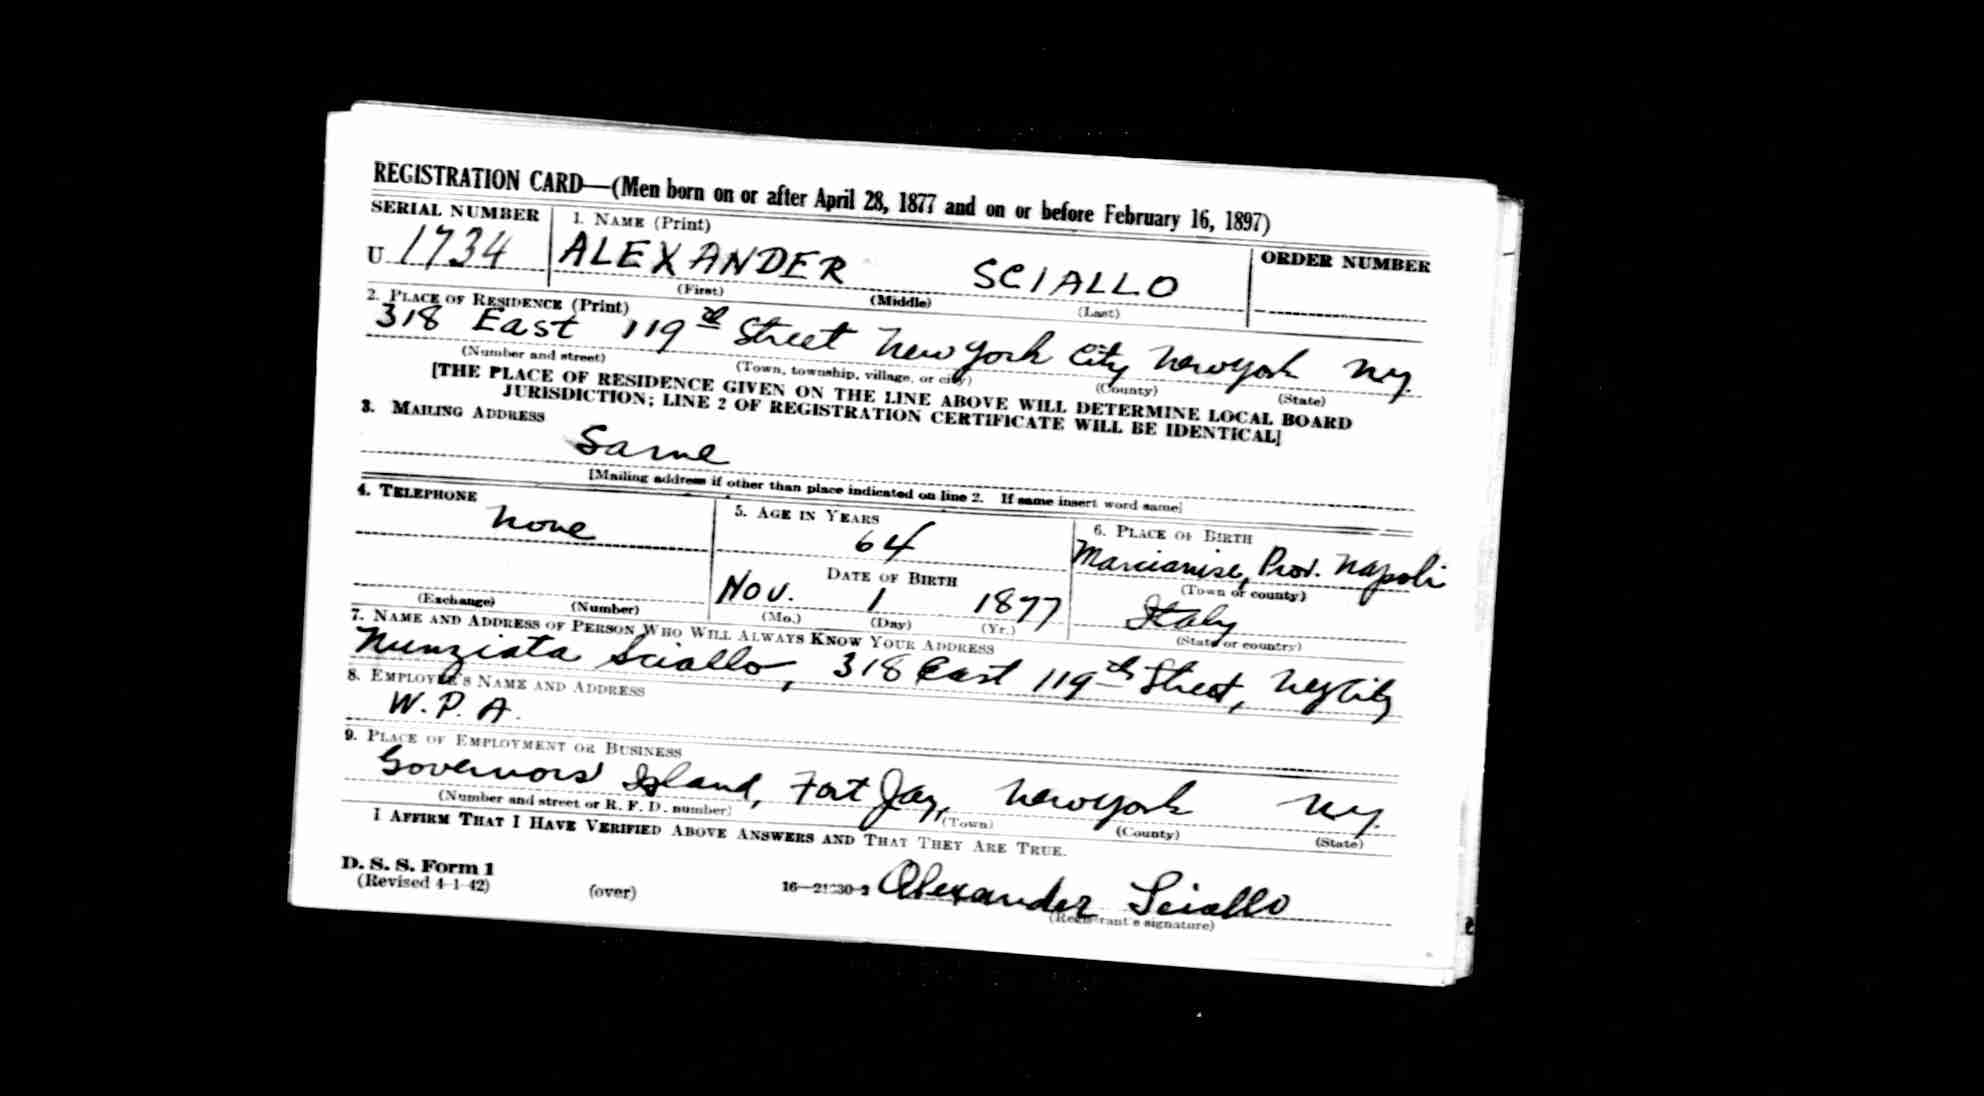 REGISTRATION CARD—(Men born on or after April 28, 1877 and on or before February 16, 1897)
SERIAL NUMBER
U 1734
1. NAME (Print)
ALEXANDER SCIALLO
(First) (Middle) (Last)
ORDER NUMBER
2. PLACE OF RESIDENCE (Print)
318 East 119th Street New York City New York N.Y.
(Number and street) (Town, township, village, or city) (County) (State)
[THE PLACE OF RESIDENCE GIVEN ON THE LINE ABOVE WILL DETERMINE LOCAL BOARD
JURISDICTION; LINE 2 OF REGISTRATION CERTIFICATE WILL BE IDENTICAL]
3. MAILING ADDRESS
Same
[Mailing address if other than place indicated on line 2. If same insert word same]
4. TELEPHONE
None
(Exchange) (Number)
5. AGE IN YEARS
64
DATE OF BIRTH
Nov. 1 1877
(Mo.) (Day) (Yr.)
6. PLACE OF BIRTH
Marcianise, Prov. Napoli
(Town or county)
Italy
(State or country)
7. NAME AND ADDRESS OF PERSON WHO WILL ALWAYS KNOW YOUR ADDRESS
Nunziata Sciallo, 318 East 119th Street, NY City
8. EMPLOYER'S NAME AND ADDRESS
W.P.A.
9. PLACE OF EMPLOYMENT OR BUSINESS
Governors' Island, Fort Jay, New York N.Y.
(Number and street or R. F. D. number) (Town) (County) (State)
I AFFIRM THAT I HAVE VERIFIED ABOVE ANSWERS AND THAT THEY ARE TRUE.
D. S. S. Form 1
(Revised 4-1-42) (over)
Alexander Sciallo
(Registrant's signature)